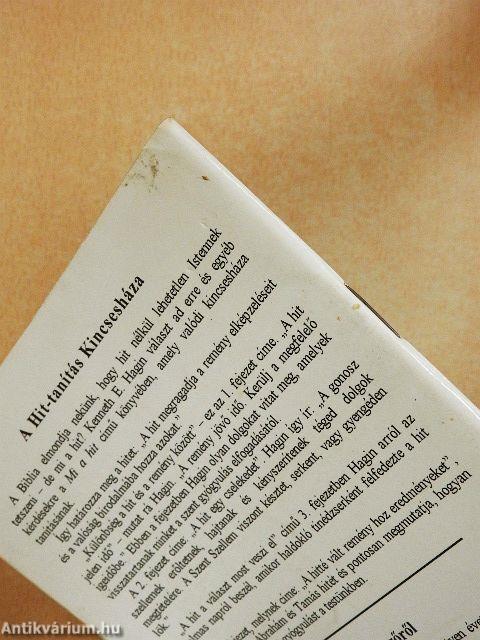 A Hit-tanítás Kincsesháza
A Biblia elmondja nekünk, hogy hit nélkül lehetetlen Istennek
tetszeni – de mi a hit? Kenneth E. Hagin választ ad erre és egyéb
kérdésekre a Mi a hit című könyvében, amely valódi kincsesháza
tanításának.
Így határozza meg a hitet: „A hit megragadja a remény elképzeléseit
és a valóság birodalmába hozza azokat."
„Különbség a hit és a remény között" – ez az 1. fejezet címe. „A hit
jelen idő – mutat rá Hagin. „A remény jövő idő. Kerülj a megfelelő
igeidőbe." Ebben a fejezetben Hagin olyan dolgokat vitat meg, amelyek
visszatartanak minket a szent gyógyulás elfogadásától.
A 2. fejezet címe: „A hit egy cselekedet". Hagin így ír: „A gonosz
szellemek erőltetnek, hajtanak és kényszerítenek téged dolgok
megtételére. A Szent Szellem viszont késztet, serkent, vagy gyengéden
„A hit a választ most veszi el" című 3. fejezetben Hagin arról az
napról beszél, amikor haldokló tinédzserként felfedezte a hit
melynek címe: „A hitte vált remény hoz eredményeket",
Ábrahám és Tamás hitét és pontosan megmutatja, hogyan
gyógyulást a testünkben.
Antikvárium.hu